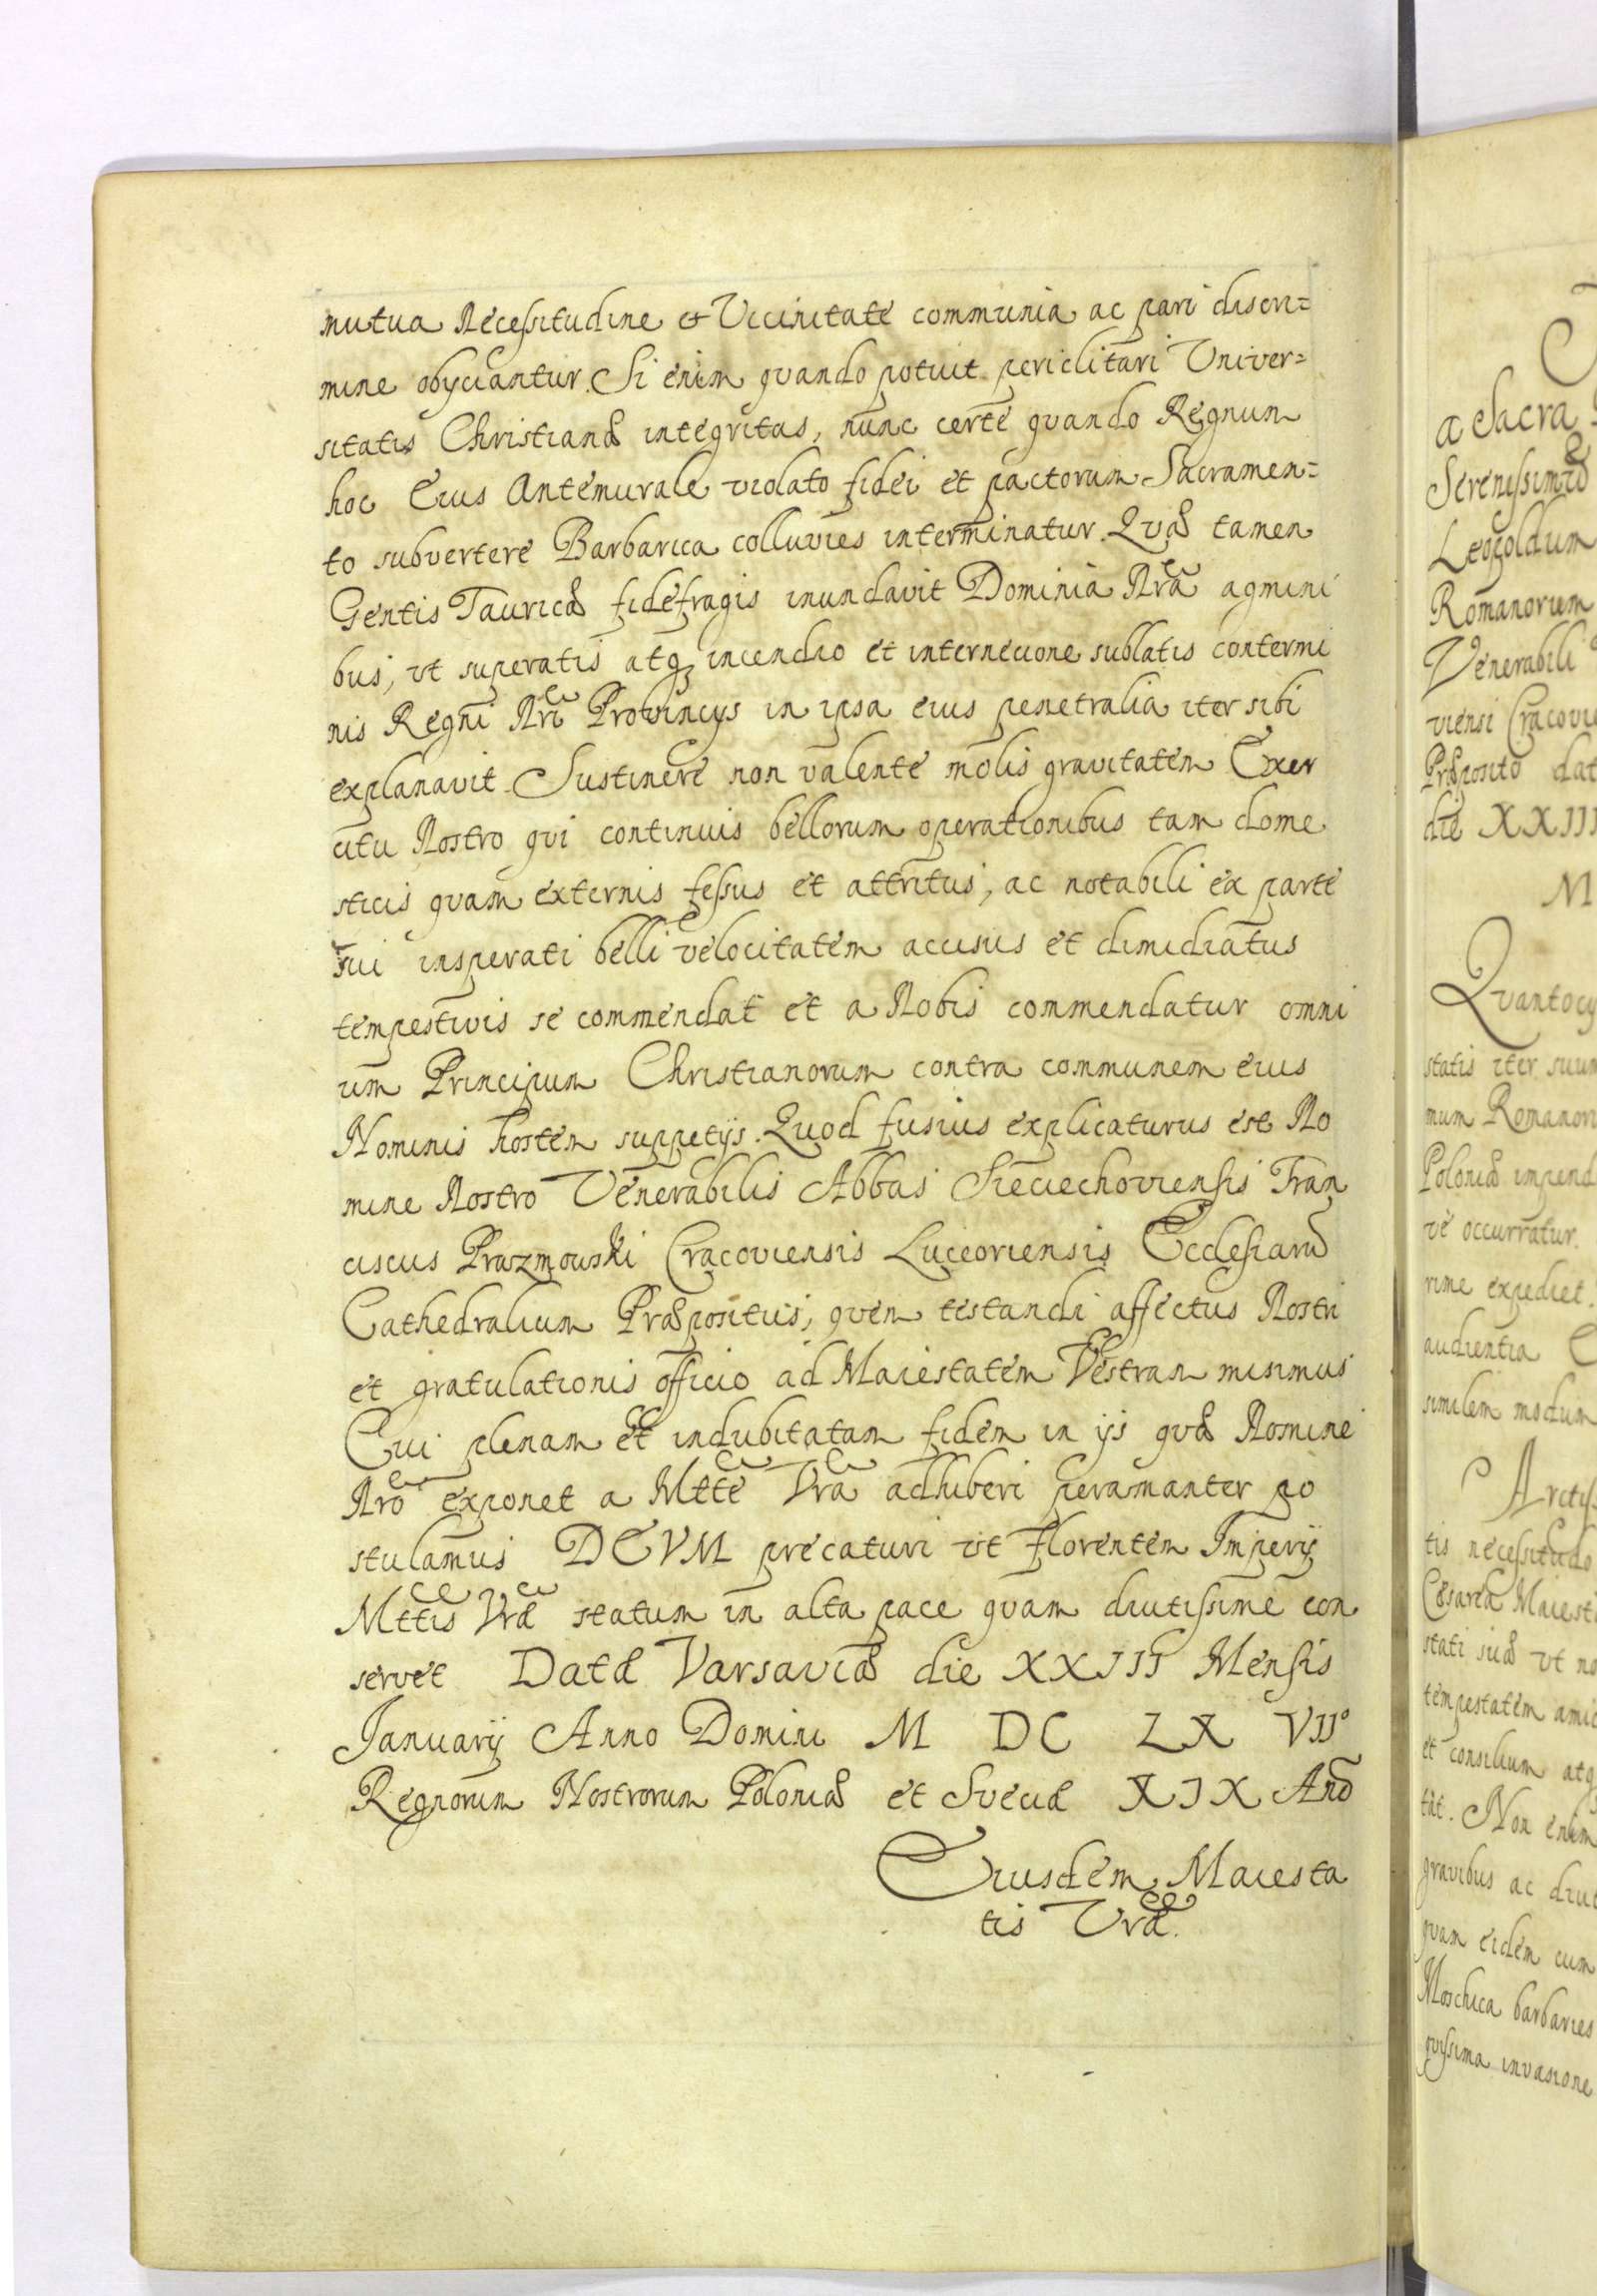 mutua Necessitudine et Vicinitate communia ac pari discri=
mine obijciantur. Si enim quando potuit periclitari Univer=
sitatis Christianæ integritas, nunc certe quando Regnum
hoc Eius Antemurale violato fidei et pactorum Sacramen=
to subvertere Barbarica colluvies interminatur. Quæ tamen
Gentis Tauricæ fidefragis inundavit Dominia Nra agmini
bus, vt superatis atq incendio et internecione sublatis contermi
nis Regni Nri Provincijs in ipsa eius penetralia iter sibi
explanavit. Sustinere non valente molis gravitatem Exer
citu Nostro qui continuis bellorum operationibus tam dome
sticis quam externis fessus et attritus, ac notabili ex parte
sui insperati belli velocitatem accisus et dimidiatus
tempestivis se commendat et a Nobis commendatur omni
um Principum Christianorum contra communem eius
Nominis hostem suppetijs. Quod fusius explicaturus est No
mine Nostro Venerabilis Abbas Sieciechoviensis Fran
ciscus Prazmowski Cracoviensis Luceoriensis Ecclesiarũ
Cathedralium Præpositus, quem testandi affectus Nostri
et gratulationis officio ad Maiestatem Vestram misimus
Cui plenam et indubitatam fidem in ijs quæ Nomine
Nro exponet a Mtte Vra adhiberi peramanter po
stulamus DEVM precaturi vt florentem Imperij
Mttis Vræ statum in alta pace quam diutissime con
servet Datæ Varsaviæ die XXIII Mensis
Ianuarij Anno Domini M DC LX VII°
Regnorum Nostrorum Poloniæ et Sveciæ XIX Anõ
Eiusdem Maiesta
tis Vræ.
a Sacra
Serenissimũ
Leopoldum
Romanorum
Venerabili
viensi Cracovi
Præposito dat
die XXIII
M
Quantocy
statis iter suum
mum Romanor
Poloniæ impend
ve occurratur.
rime expediet.
audientia
similem modum
Arctis
tis necessitudo
Cæsarea Maiest
stati suæ vt no
tempestatem amic
et consilium atq
tat. Non enim
gravibus ac diut
quam eidem cum
Moschica barbaries
quissima invasione